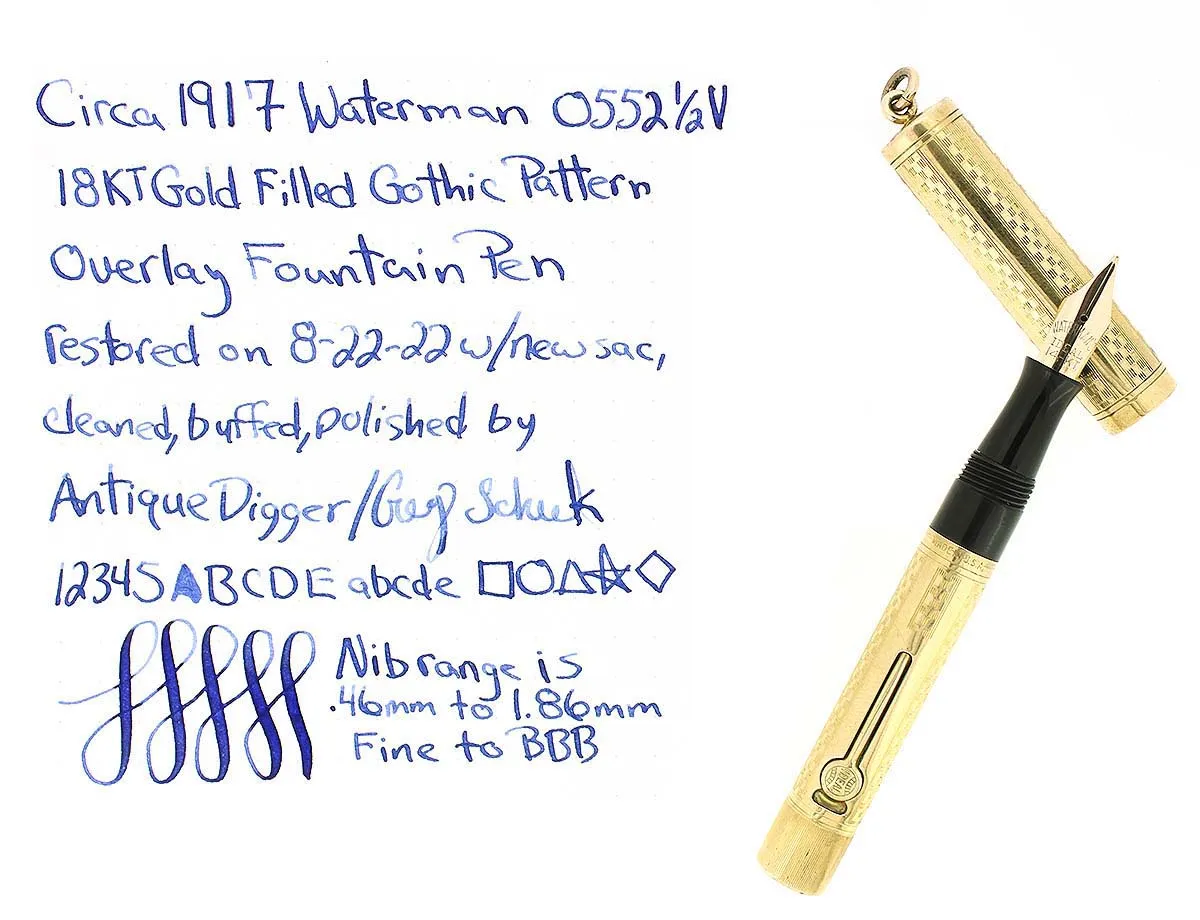 Circa 1917 Waterman 0552½V
18KT Gold Filled Gothic Pattern
Overlay Fountain Pen
restored on 8-22-22 w/new sac,
cleaned, buffed, polished by
Antique Digger/Greg
12345 ABCDE abcde □○△☆◇
Nib range is
.46mm to 1.86mm
Fine to BBB
IDEAL
MADE IN U.S.A.
IDEAL